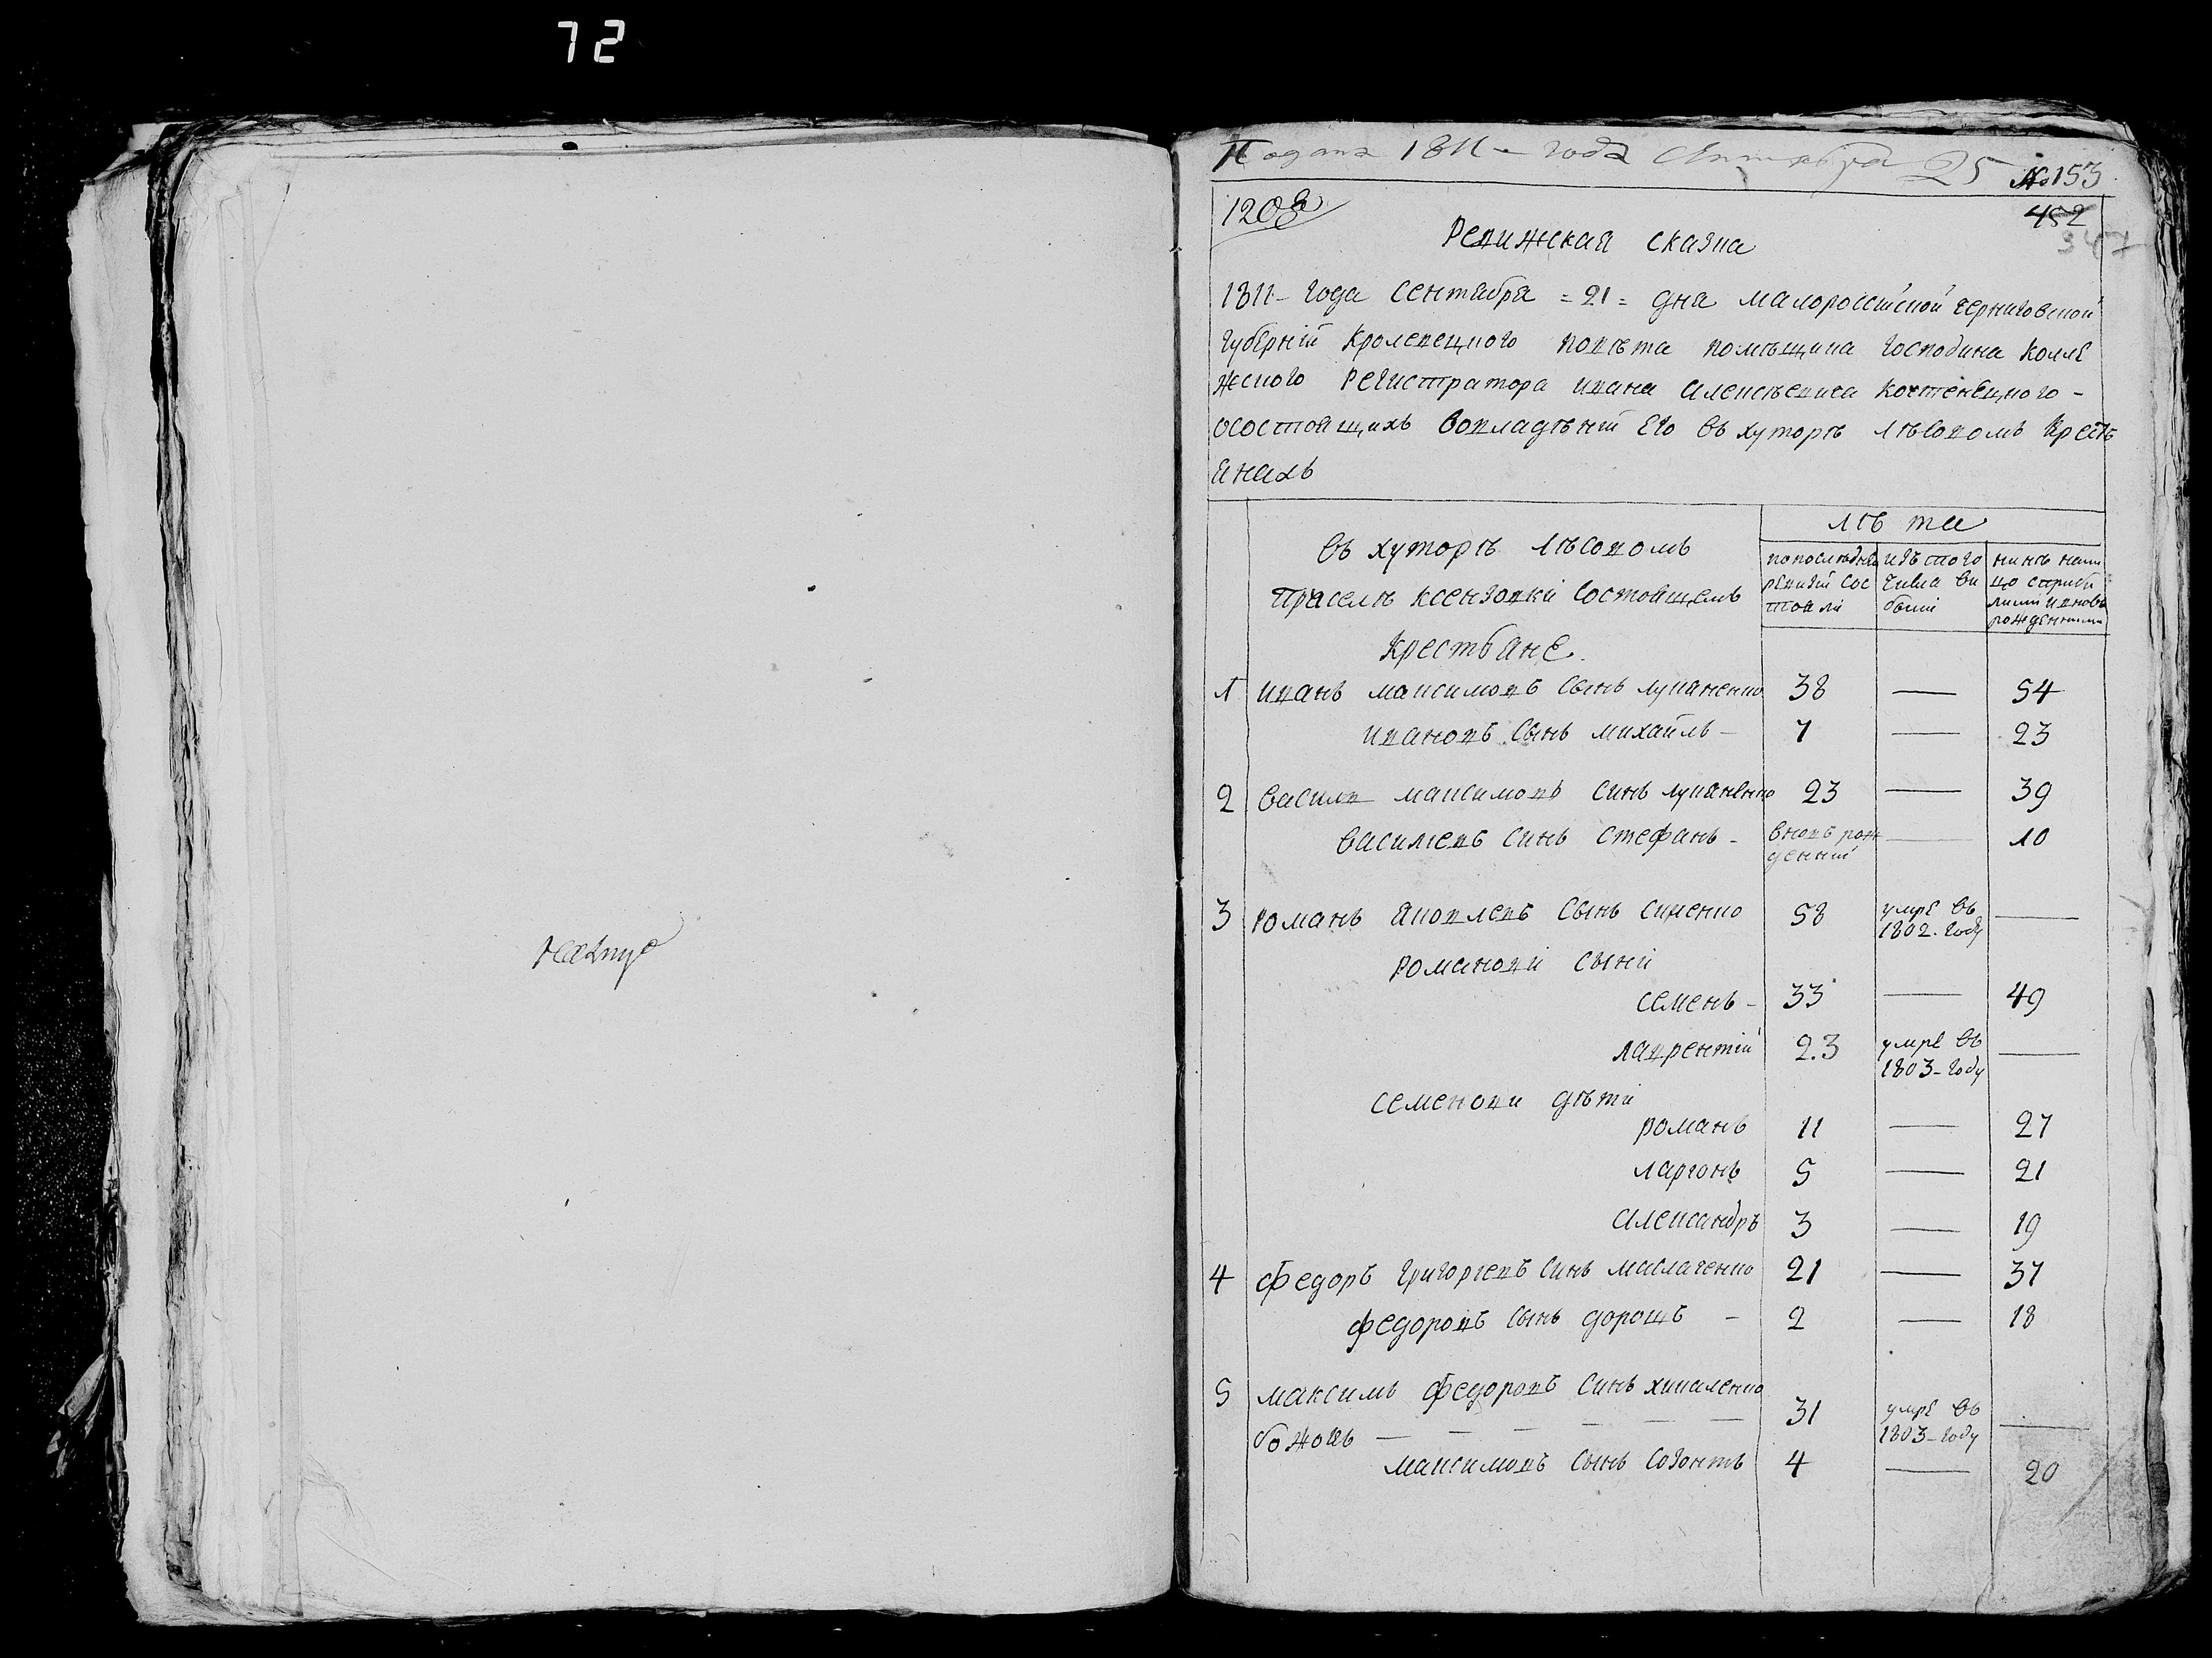 72
Подана 1811 – года Сентября 25 №153
1208
452
347
Ревижская сказка
1811 – года сентября = 21 = дня малороссійской черниговской
губерніи Кролевецкого повѣта помѣщика господина колле
жского Регистратора ивана алексѣевича костенецкого –
осостоящихъ вовладѣніи его въ хуторѣ лѣсовомъ крестъ
янахъ
лѣта
въ хуторѣ лѣсовомъ
приселѣ ксензовки состоящемъ
Крестьяне.
попоследней ревизіи сос тояли
изъ того числа вы были
нинѣ нали цо сприбы лими ивновъ рожденними
1 иванъ максимовъ сынъ лупаненко 38 — 54
ивановъ сынъ михаилъ – 7 — 23
2 василь максимовъ синъ лупаненко 23 — 39
василіевъ синъ стефанъ – вновъ рож денній — 10
3 романъ яковлевъ сынъ сименко 58 умре въ 1802. году —
романови сыни
семенъ – 33 — 49
лаврентій 23 умре въ 1803 – году —
семенови дѣти
романъ 11 — 27
ларіонъ 5 — 21
александръ 3 — 19
4 федоръ григоріевъ синъ маслаченко 21 — 37
федоровъ сынъ дорошъ – 2 — 18
5 максимъ федоровъ синъ
божокъ — — — — — — 31 умре въ 1803 – году —
максимовъ сынъ созонтъ 4 — 20